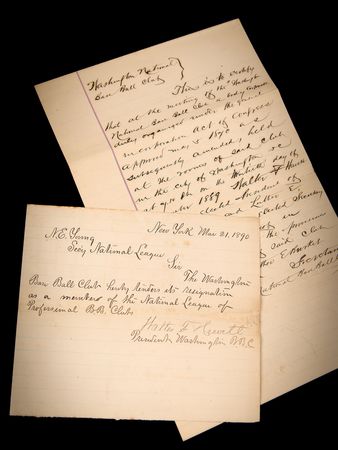 Washington National
Base Ball Club
This is to certify
that at the meeting of the Washington
National Base Ball Club a body corporate
duly organized under the general
incorporation act of Congress
approved May 5 1870 as
subsequently amended, held
at the rooms of said Club
in the city of Washington
at 4 on the day of
1889 Walter F Hewitt
elected President of
and E
elected Secretary
in
the premises
said Club
Burket
Secretary
National Base Ball
New York Mar 21. 1890
N. E. Young
Secy National League
Sir
The Washington
Base Ball Club hereby tenders its resignation
as a member of the National League of
Professional B.B. Clubs
Walter F Hewett
President Washington B.B.C